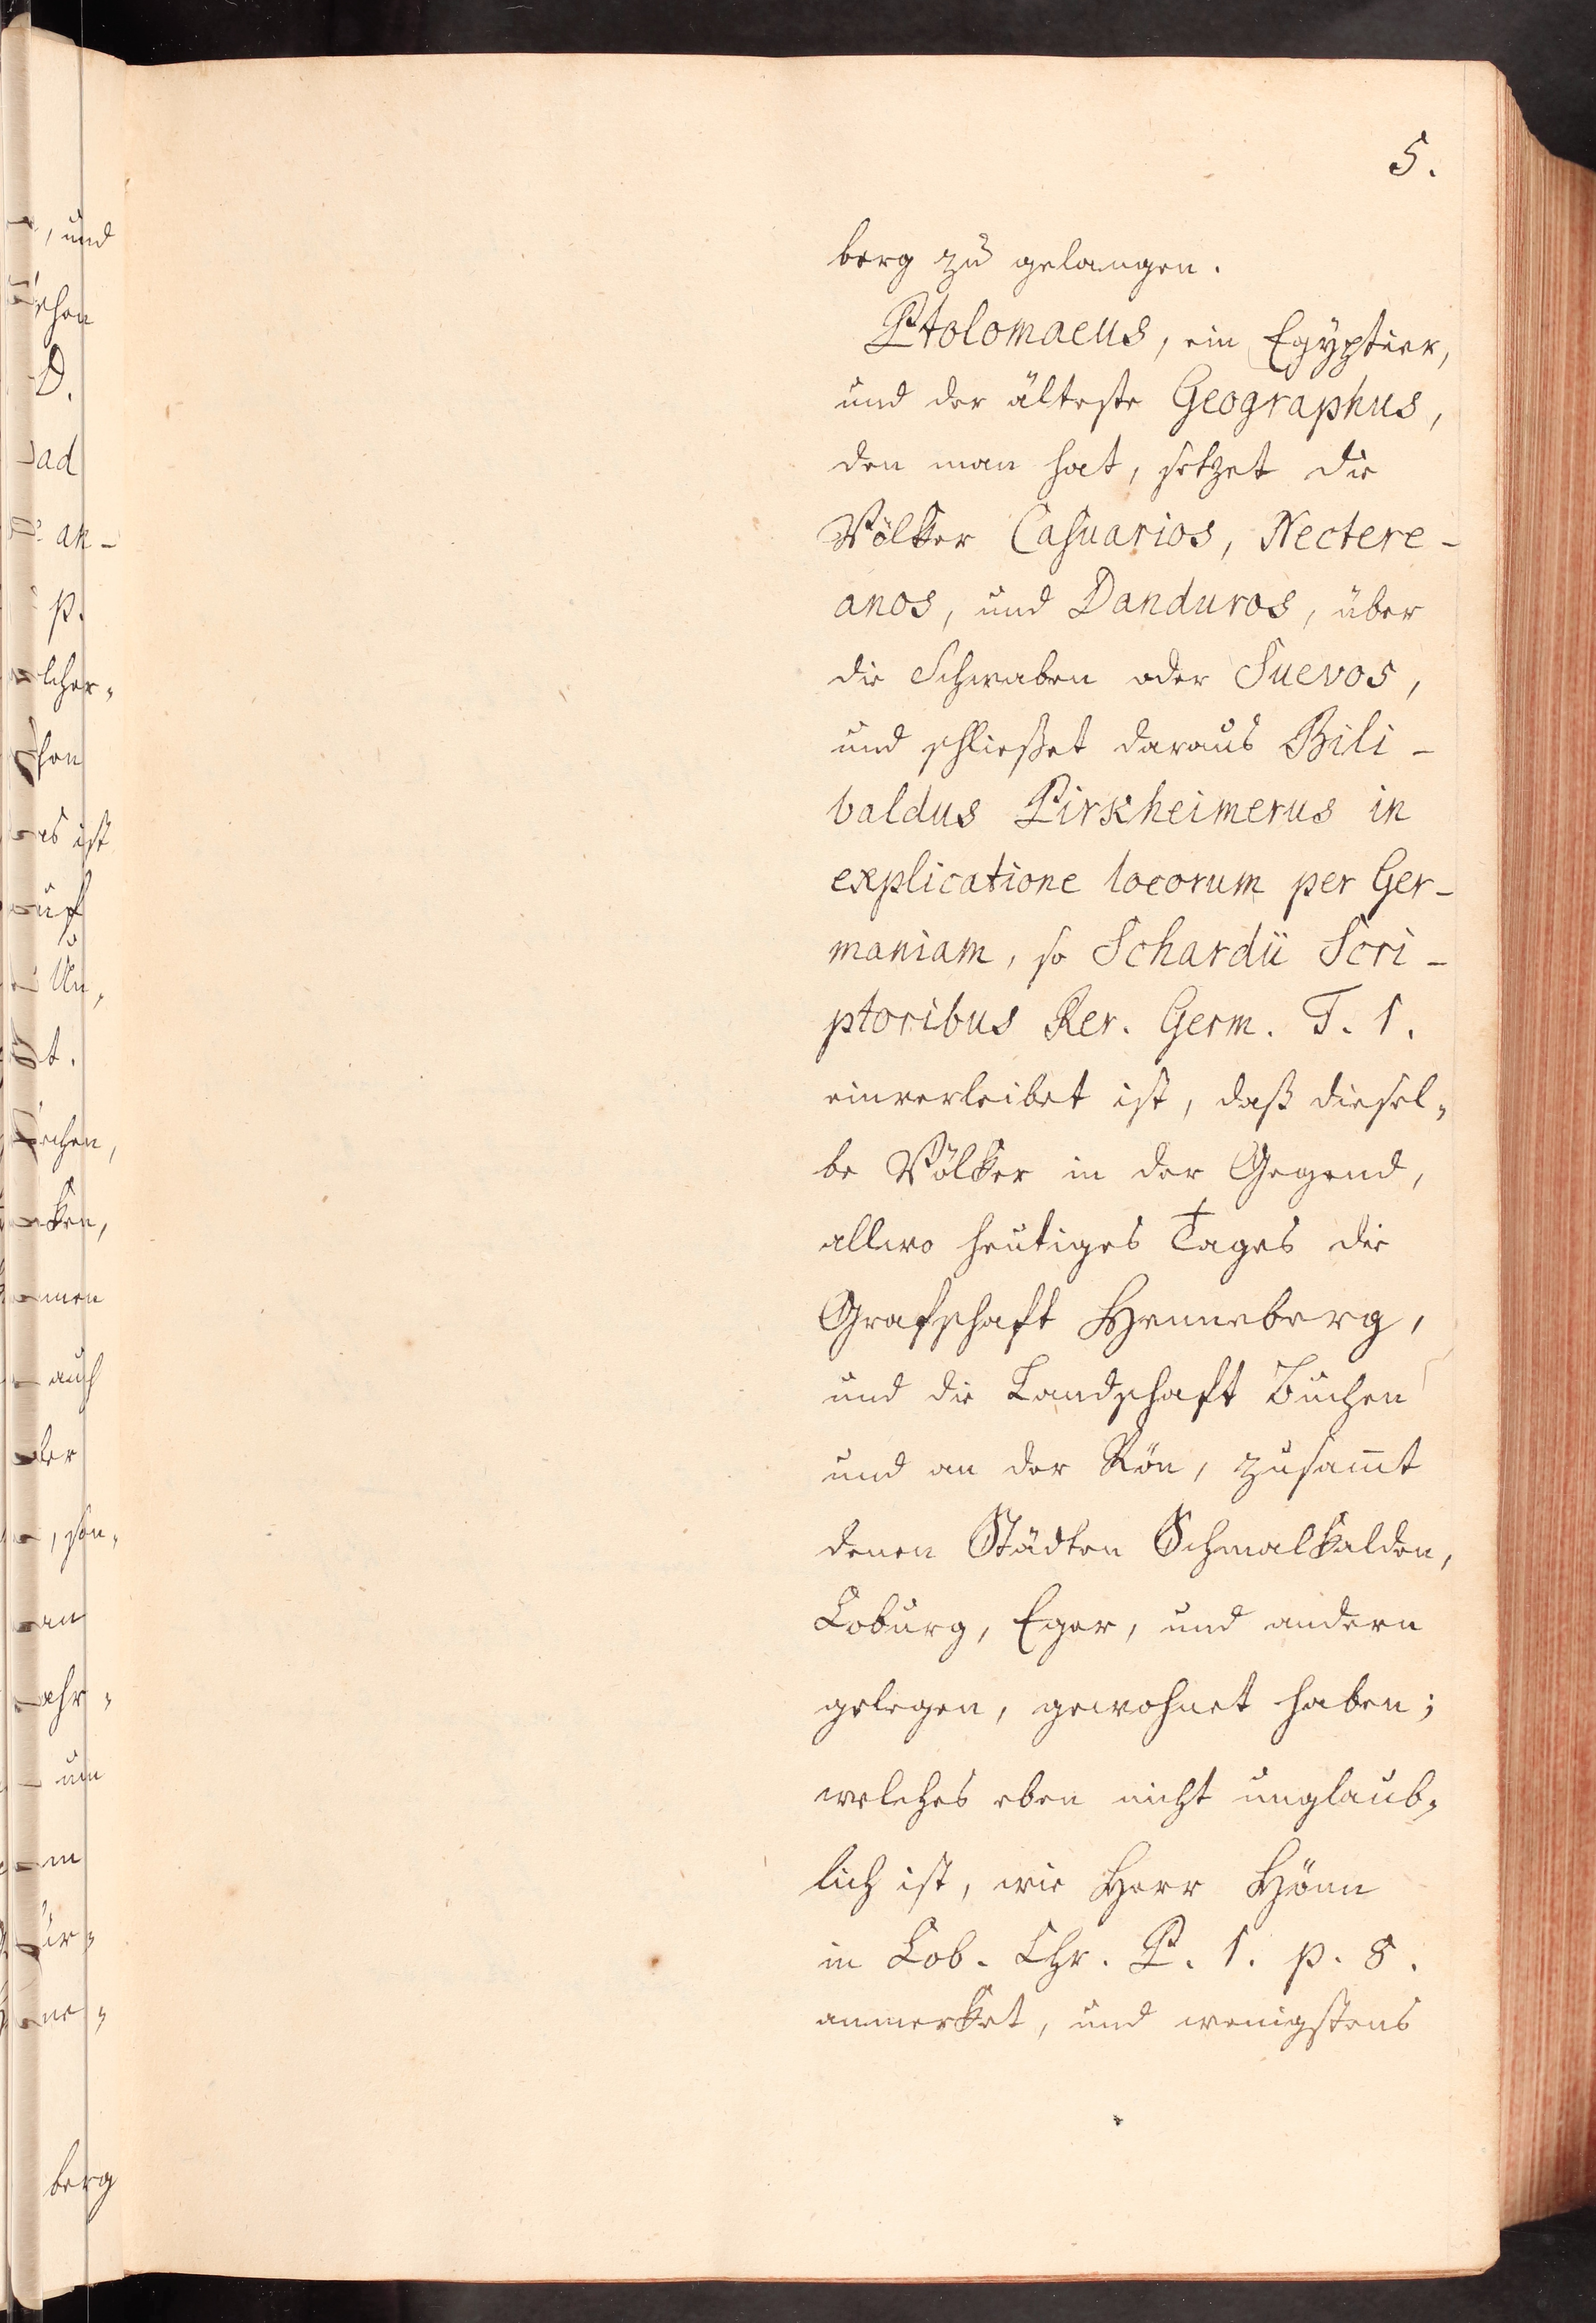 5.
berg zu gelangen.
Ptolomaeus, ein Egyptier,
und der älteste Geographus,
den man hat, setzet die
Völker Casuarios, Nectere-
anos, und Danduros, über
die Schwaben oder Suevos,
und schließet daraus Bili-
baldus Pirkheimerus in
explicatione locorum per Ger-
maniam, so Schardii Scri-
ptoribus Rer. Germ. T. 1.
einverleibet ist, daß diesel-
be Völker in der Gegend,
allwo heutiges Tages die
Grafschaft Henneberg,
und die Landschaft Buchen
und an der Rön, zusammt
denen Städten Schmalkalden,
Coburg, Eger, und andern
gelegen, gewohnet haben;
welches eben nicht unglaub-
lich ist, wie Herr Hönn
in Cob. Chr. P. 1. p. 8.
anmerket, und wenigstens
, und
D.
ad
p.
auch
um
berg